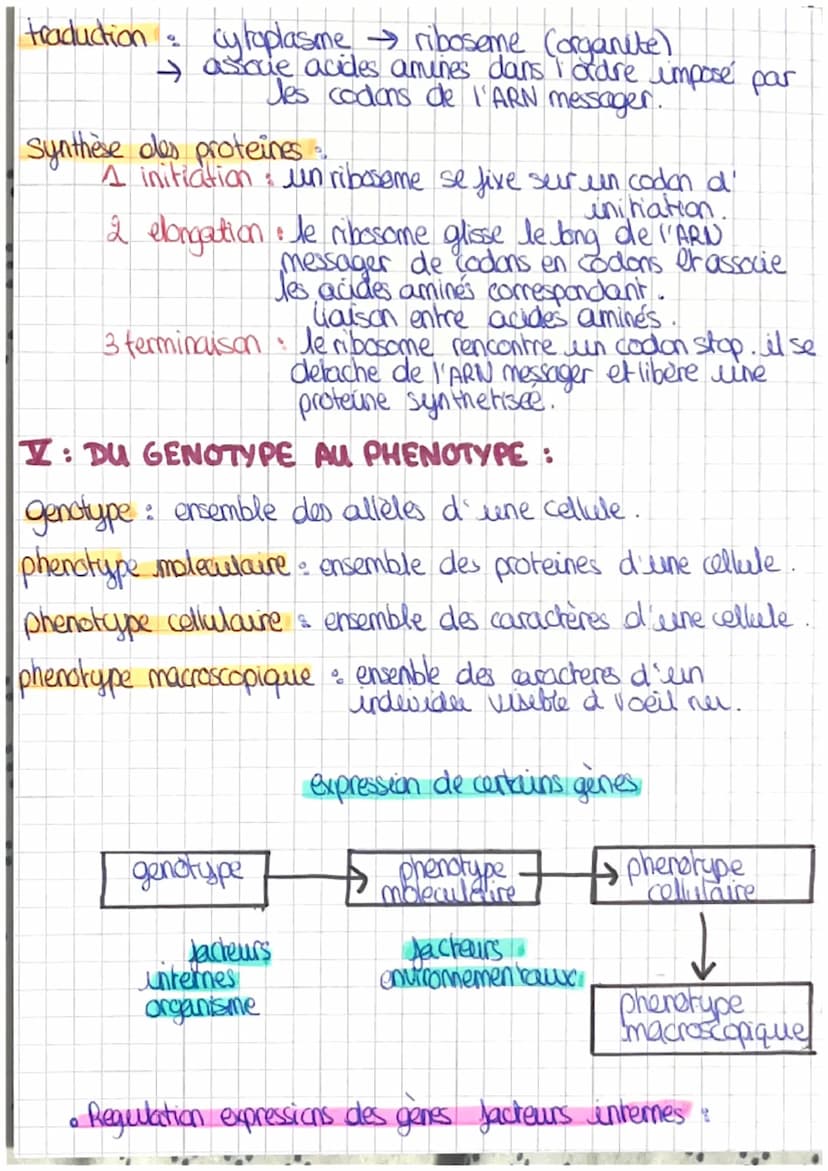 traduction : cytoplasme → ribosome (organite)
→ associe acides aminés dans l'ordre imposé par
les codons de l'ARN messager.
synthèse des proteines :
1 initiation : un ribosome se fixe sur un codon d'
initiation.
2 elongation : le ribosome glisse le long de l'ARN
messager de codons en codons et associe
les acides aminés correspondant.
liaison entre acides aminés.
3 terminaison : le ribosome rencontre un codon stop. il se
detache de l'ARN messager et libère une
proteine synthetisée.
V : DU GENOTYPE AU PHENOTYPE :
genotype : ensemble des allèles d'une cellule.
phenotype moleculaire : ensemble des proteines d'une cellule.
phenotype cellulaire : ensemble des caractères d'une cellule.
phenotype macroscopique : ensemble des caracteres d'un
individu visible à l'oeil nu.
expression de certains gènes
genotype → phenotype → phenotype
moleculaire cellulaire
facteurs facteurs
internes environnementaux
organisme
phenotype
macroscopique
• Regulation expressions des gènes facteurs internes :